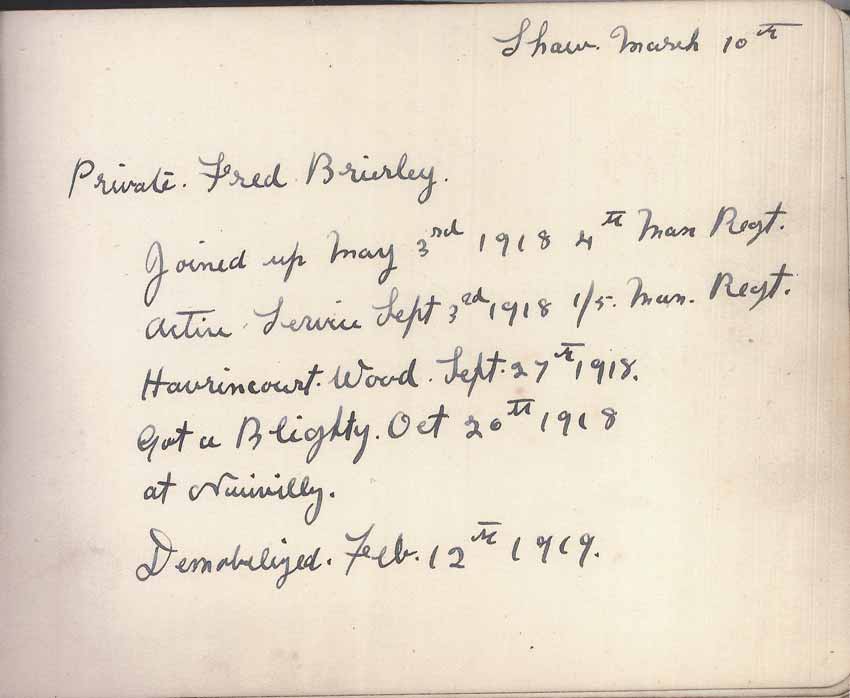 Shaw. March 10th
Private. Fred Brierley.
Joined up May 3rd 1918 4th Man Regt.
Active Service Sept 3rd 1918 1/5. Man. Regt.
Havrincourt. Wood. Sept. 27th 1918.
Got a Blighty. Oct 20th 1918
at Nuivilly.
Demobilized. Feb. 12th 1919.